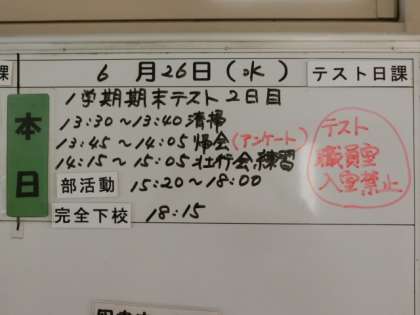 課
6 月 26 日 ( 水 )
テスト日課
本日
1学期期末テスト2日目
13:30～13:40 清掃
13:45～14:05 帰会(アンケート)
14:15～15:05 壮行会練習
部活動 15:20～18:00
完全下校 18:15
テスト
職員室
入室禁止
課